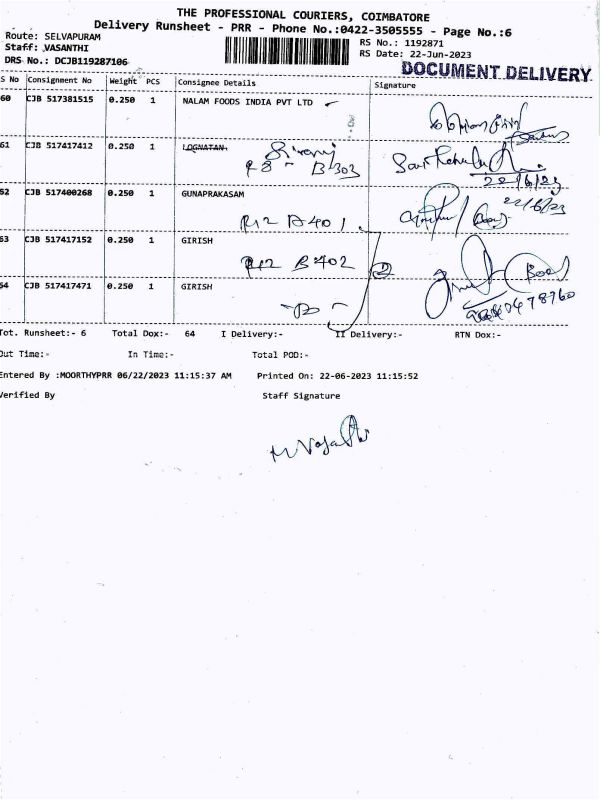 THE PROFESSIONAL COURIERS, COIMBATORE
Delivery Runsheet - PRR - Phone No.:0422-3505555 - Page No.:6
Route: SELVAPURAM
Staff: VASANTHI
DRS No.: DCJB119287106
RS No.: 1192871
RS Date: 22-Jun-2023
DOCUMENT DELIVERY
S No Consignment No Weight PCS Consignee Details Signature
60 CJB 517381515 0.250 1 NALAM FOODS INDIA PVT LTD
61 CJB 517417412 0.250 1 LOGNATAN.
B 303
22/6/23
62 CJB 517400268 0.250 1 GUNAPRAKASAM
22/6/23
R12 A 401
63 CJB 517417152 0.250 1 GIRISH
R12 B 402
54 CJB 517417471 0.250 1 GIRISH
Tot. Runsheet:- 6 Total Dox:- 64 I Delivery:- II Delivery:- RTN Dox:-
Out Time:- In Time:- Total POD:-
Entered By :MOORTHYPRR 06/22/2023 11:15:37 AM Printed On: 22-06-2023 11:15:52
Verified By Staff Signature